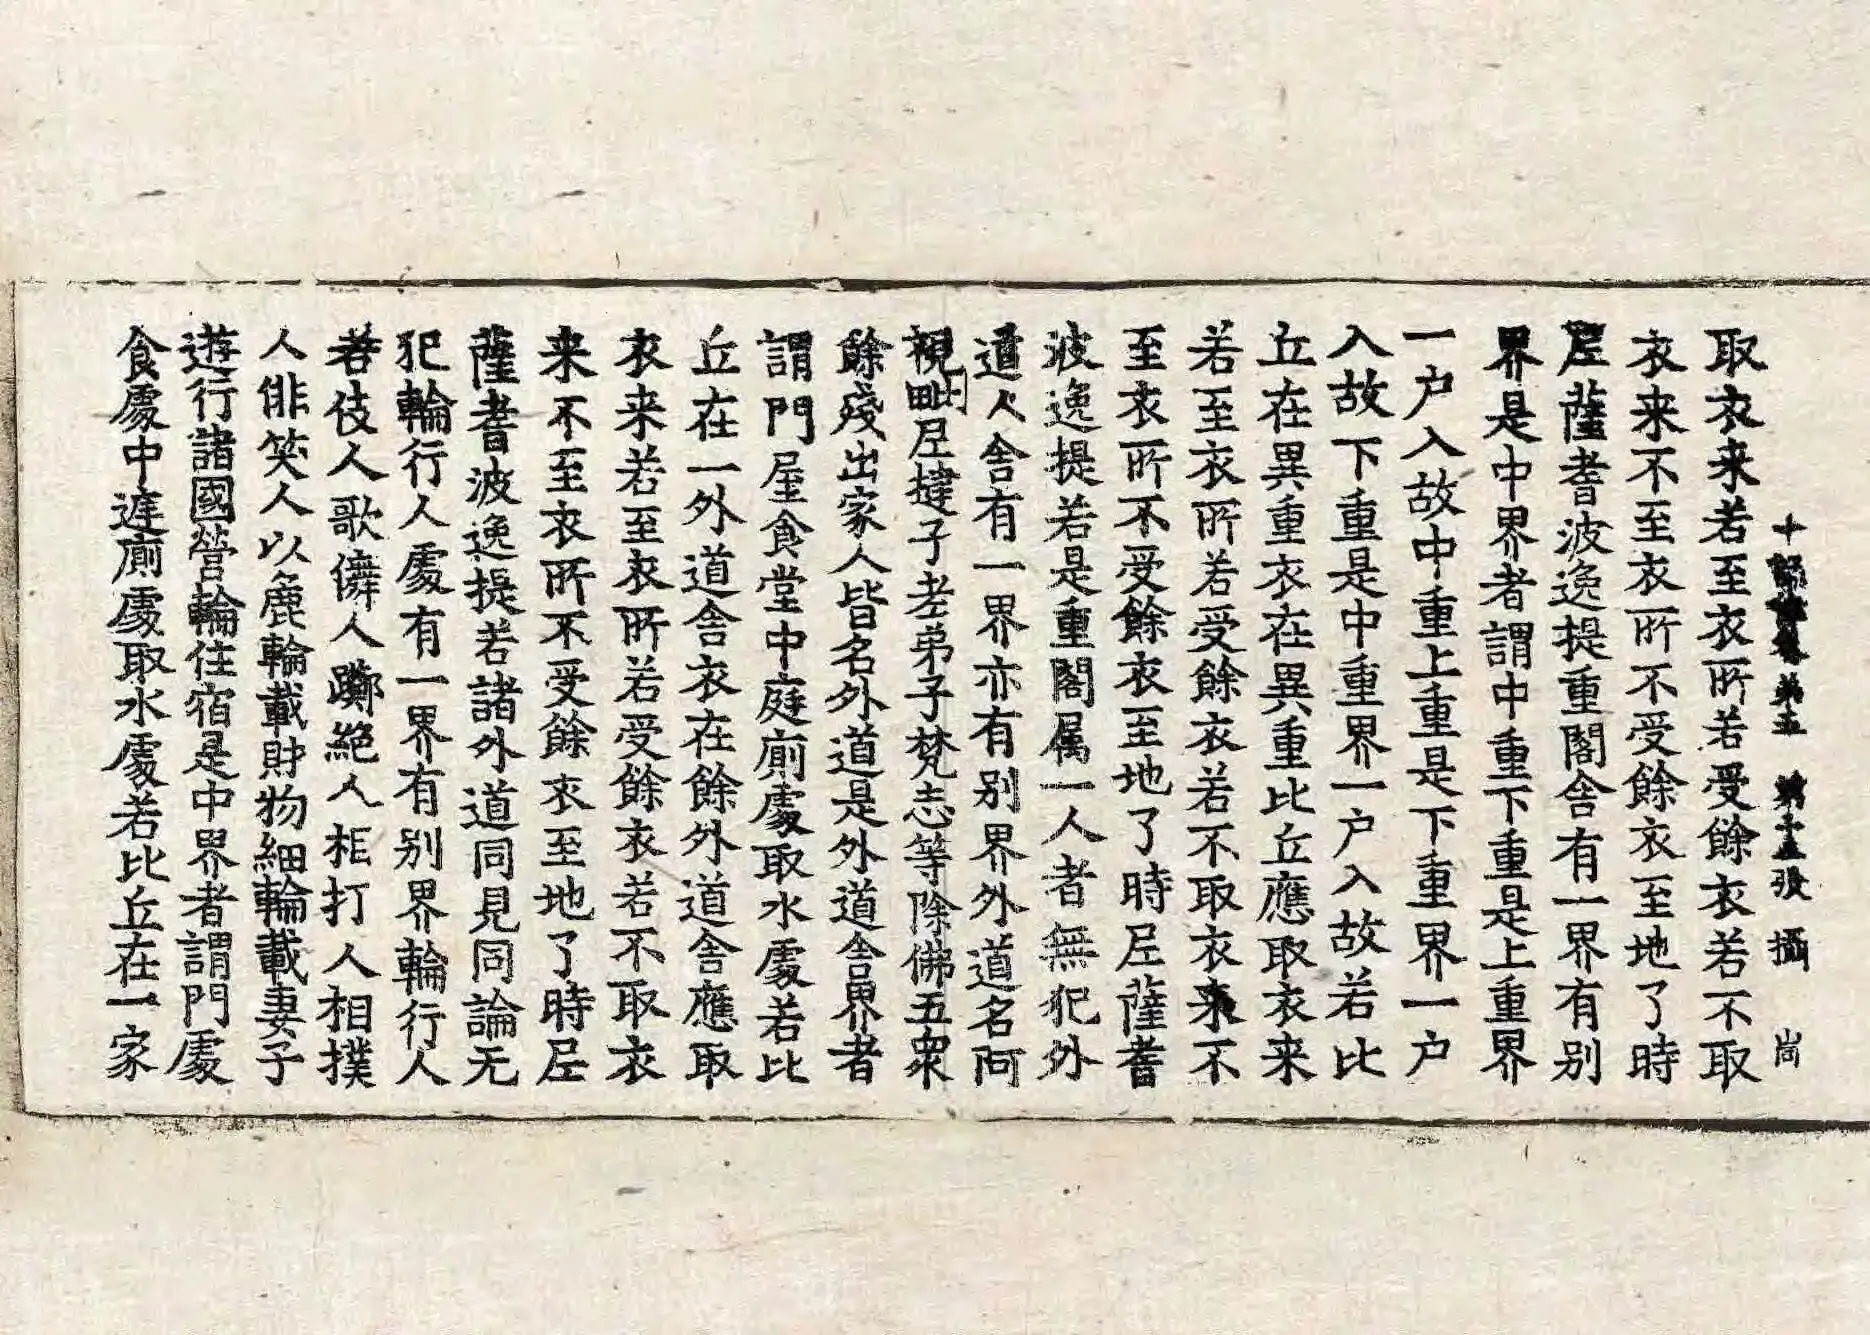 十誦律卷第五 第十五張 攝 尚
取衣来若至衣所若受餘衣若不取
衣来不至衣所不受餘衣至地了時
𡰱薩耆波逸提重閣舎有一界有别
界是中界者謂中重下重是上重界
一户入故中重上重是下重界一户
入故下重是中重界一户入故若比
丘在異重衣在異重比丘應取衣来
若至衣所若受餘衣若不取衣来不
至衣所不受餘衣至地了時𡰱薩耆
波逸提若是重閣属一人者無犯外
道人舎有一界亦有别界外道名阿
視毗𡰱揵子老弟子梵志等除佛五衆
餘殘出家人皆名外道是外道舎界者
謂門屋食堂中庭廁處取水處若比
丘在一外道舎衣在餘外道舎應取
衣来若至衣所若受餘衣若不取衣
来不至衣所不受餘衣至地了時𡰱
薩耆波逸提若諸外道同見同論无
犯輪行人處有一界有别界輪行人
者伎人歌儛人躑絕人相打人相撲
人俳笑人以麁輪載財物細輪載妻子
遊行諸國營輪住宿是中界者謂門處
食處中遮廁處取水處若比丘在一家